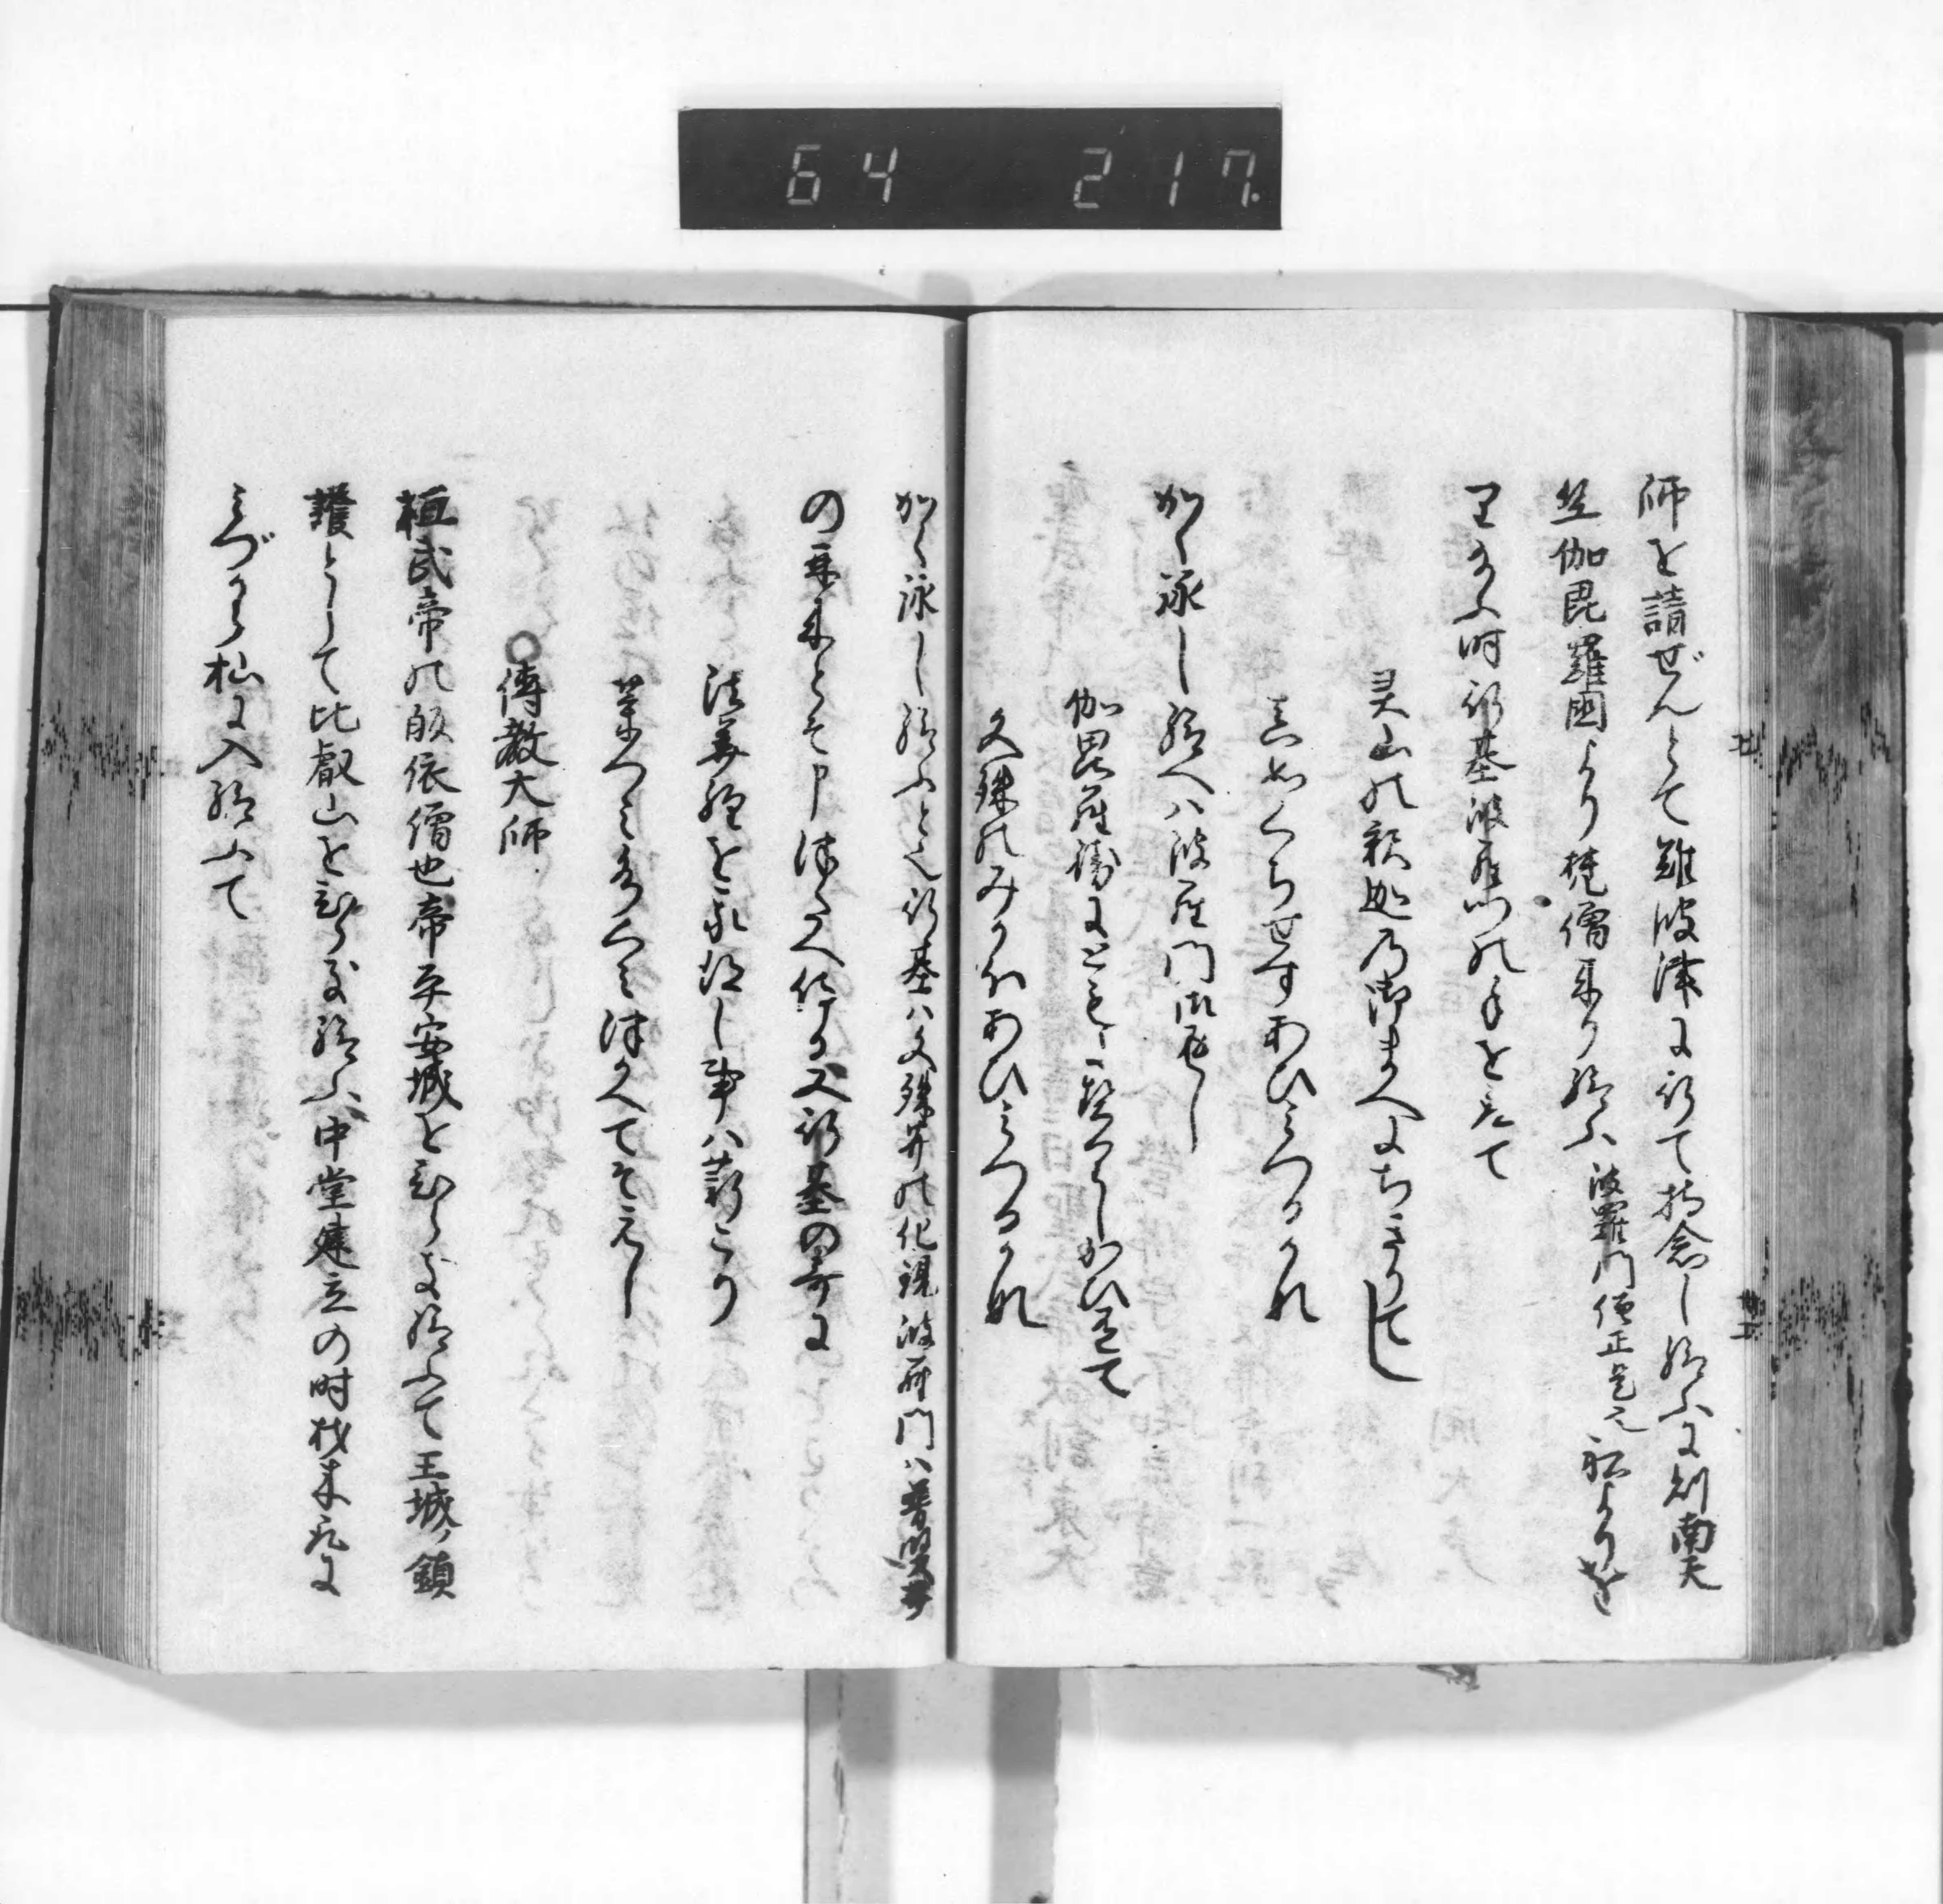 64 217
師を請ぜんとて難波津に行て持念し給ふに則南天
竺伽毘羅国より梵僧来り給ふ波羅門僧正是也船よりを
り給ふ時行基波羅門の手をとて
灵山の釈迦の御まへにちきりてし
真如くちせすあひみつるかな
かく詠し給へハ波羅門御返し
伽毘羅衛にともに契りしかひありて
文殊のみかほあひみつるかな
かく詠し給ふと也行基ハ文殊并の化現波羅門ハ普賢并
の再来とそ申伝へ侍る又行基の哥に
法華経を我得し事ハ薪こり
菜つみ水くみ仕へてそえし
○傳教大師
桓武帝の皈依僧也帝平安城をひらき給ふて王城ノ鎮
護として比叡山をひらき給ふ中堂建立の時材木取に
みづから杣に入給ふて